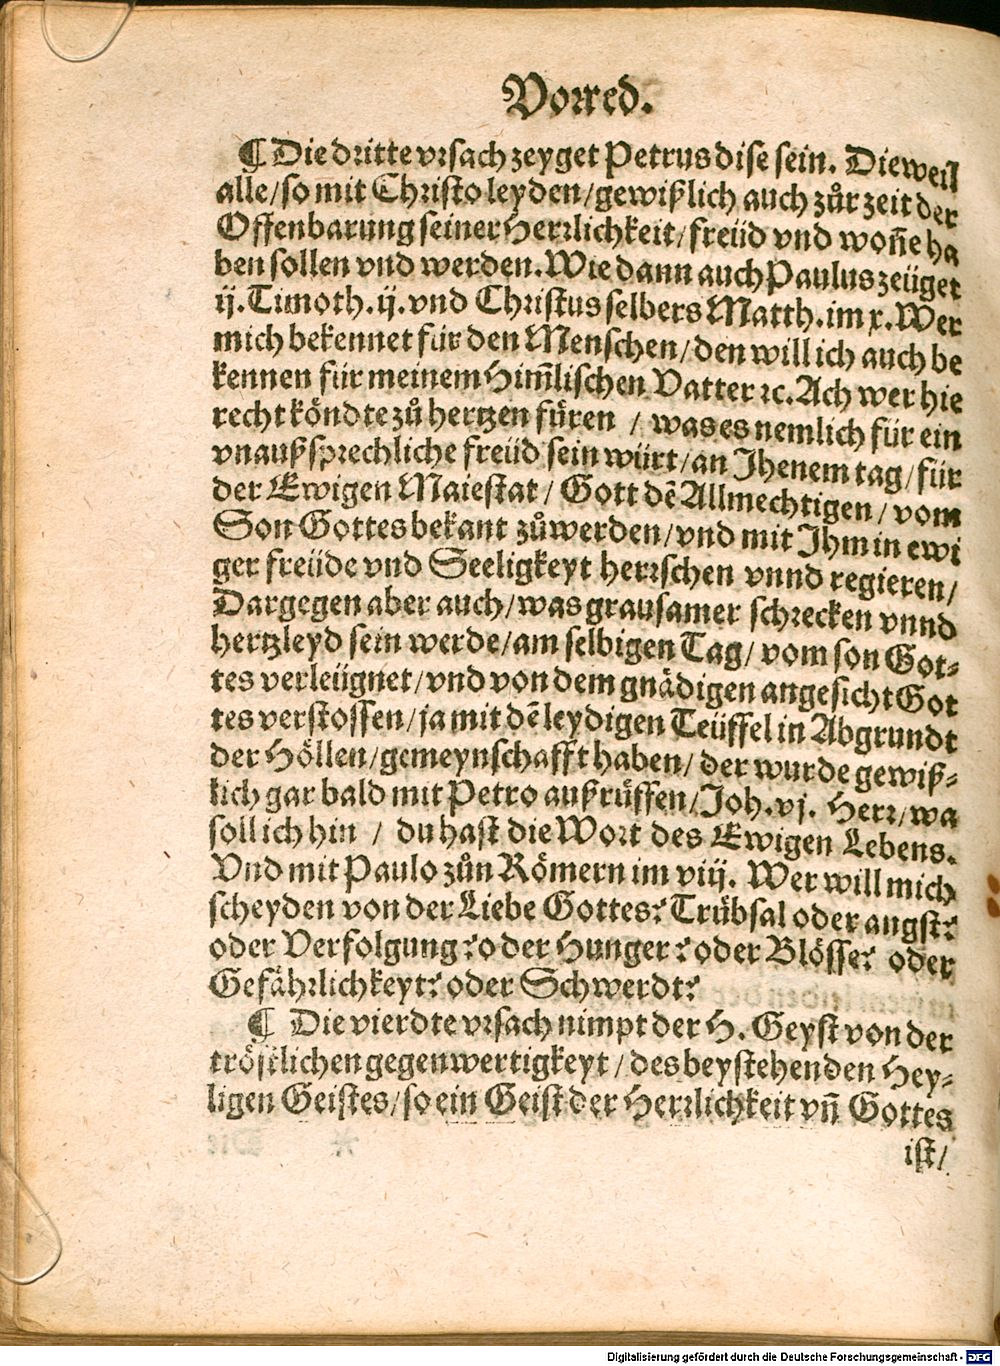 Vorred.
¶ Die dritte vrsach zeyget Petrus dise sein. Dieweil
alle/so mit Christo leyden/gewißlich auch zůr zeit der
Offenbarung seiner Herrlichkeit/freüd vnd woñe ha
ben sollen vnd werden. Wie dann auch Paulus zeüget
ij. Timoth. ij. vnd Christus selbers Matth. im x. Wer
mich bekennet für den Menschen/den will ich auch be
kennen für meinem Him̃lischen Vatter ꝛc. Ach wer hie
recht köndte zů hertzen füren / was es nemlich für ein
vnaußsprechliche freüd sein würt/an Jhenem tag/für
der Ewigen Maiestat/ Gott dẽ Allmechtigen/ vom
Son Gottes bekant zůwerden/vnd mit Jhm in ewi
ger freüde vnd Seeligkeyt herrschen vnnd regieren/
Dargegen aber auch/was grausamer schrecken vnnd
hertzleyd sein werde/am selbigen Tag/ vom son Got-
tes verleügnet/vnd von dem gnädigen angesicht Got
tes verstossen/ja mit dẽ leydigen Teüffel in Abgrundt
der Höllen/gemeynschafft haben/ der wurde gewiß-
lich gar bald mit Petro außrüffen/Joh. vj. Herr/wa
soll ich hin / du hast die Wort des Ewigen Lebens.
Vnd mit Paulo zůn Römern im viij. Wer will mich
scheyden von der Liebe Gottes? Trübsal oder angst?
oder Verfolgung? oder Hunger? oder Blösse? oder
Gefährlichkeyt? oder Schwerdt?
¶ Die vierdte vrsach nimpt der H. Geyst von der
tröstlichen gegenwertigkeyt/des beystehenden Hey-
ligen Geistes/so ein Geist der Herrlichkeit vñ Gottes
ist/
Digitalisierung gefördert durch die Deutsche Forschungsgemeinschaft - DFG